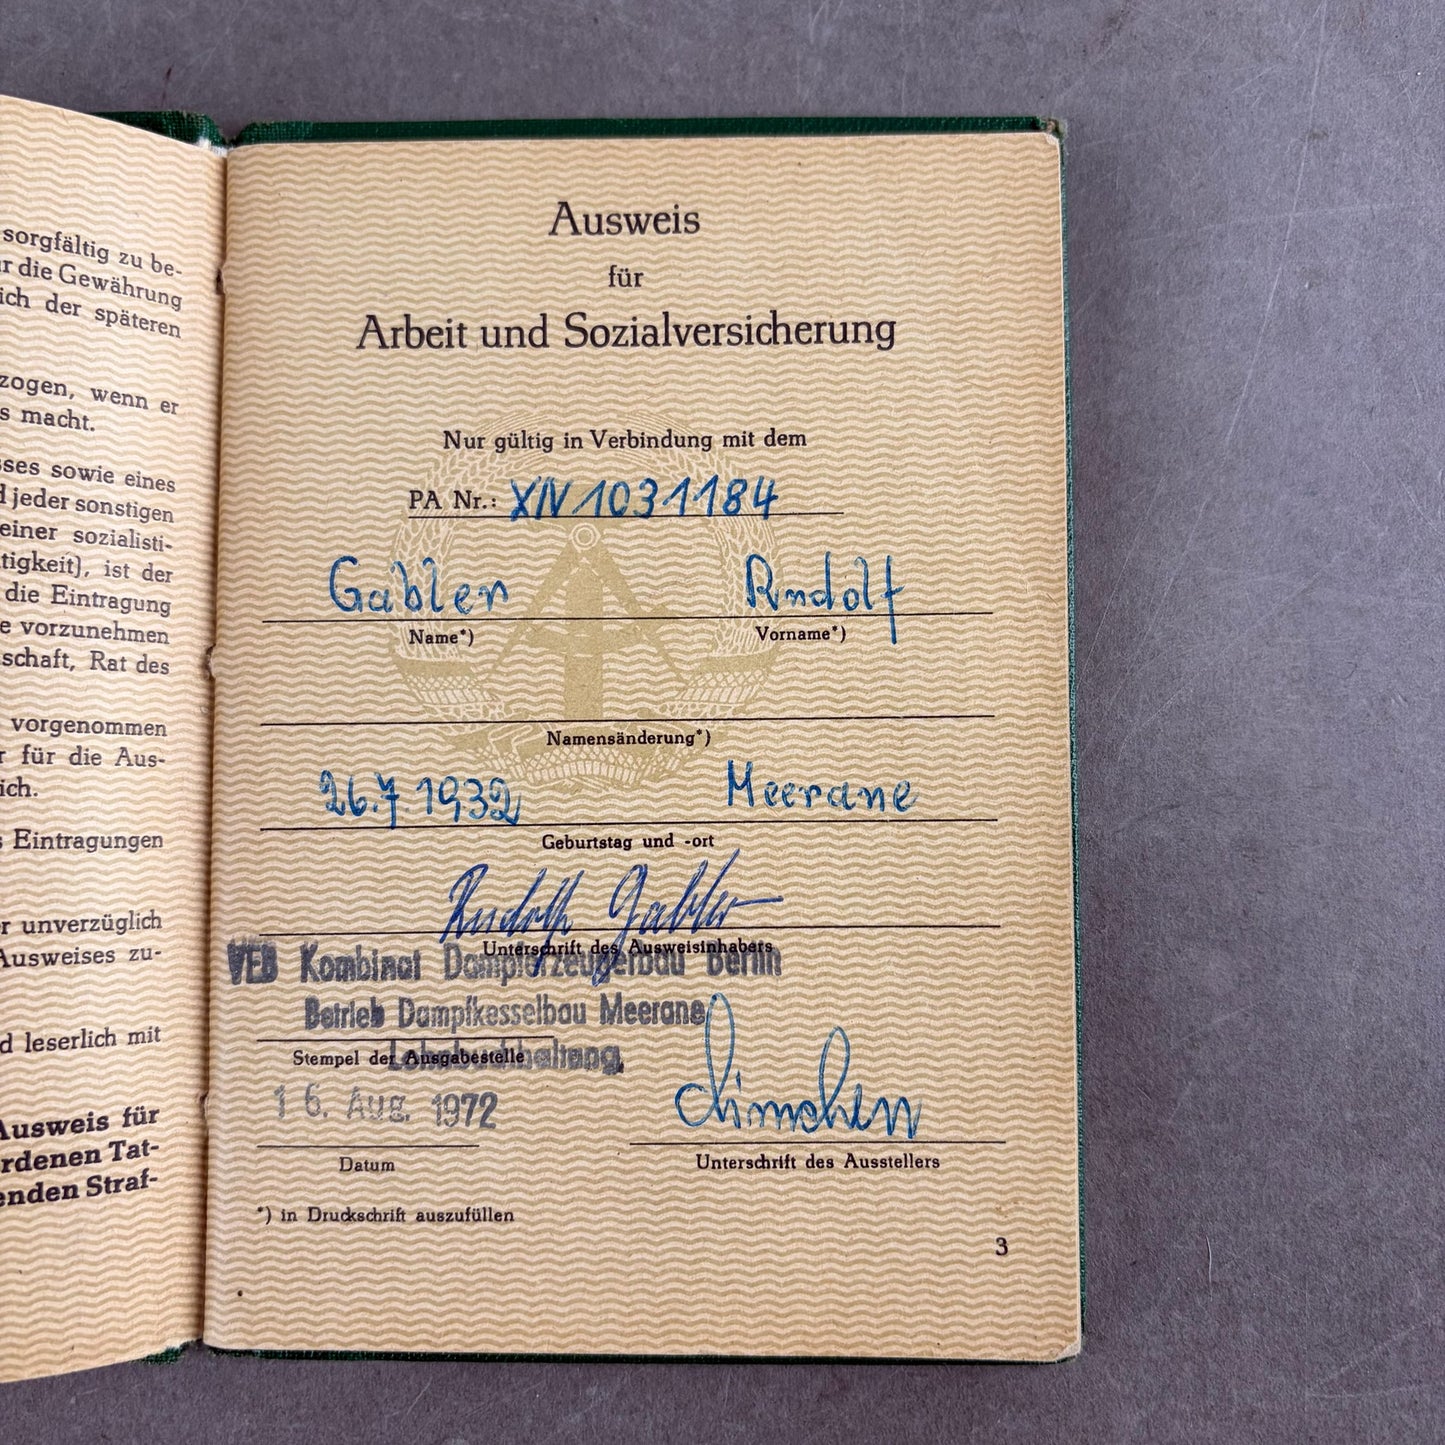 sorgfältig zu be-
r die Gewährung
ich der späteren
zogen, wenn er
s macht.
sses sowie eines
d jeder sonstigen
einer sozialisti-
tigkeit), ist der
die Eintragung
e vorzunehmen
schaft, Rat des
vorgenommen
r für die Aus-
ich.
s Eintragungen
r unverzüglich
Ausweises zu-
d leserlich mit
Ausweis für
rdenen Tat-
enden Straf-
Ausweis
für
Arbeit und Sozialversicherung
Nur gültig in Verbindung mit dem
PA Nr.: XIV 1031184
Gabler Rudolf
Name*) Vorname*)
Namensänderung*)
26.7.1932 Meerane
Geburtstag und -ort
Rudolf Gabler
Unterschrift des Ausweisinhabers
VEB Kombinat Dampferzeugerbau Berlin
Betrieb Dampfkesselbau Meerane
Lohnbuchhaltung
Stempel der Ausgabestelle
16. Aug. 1972
Datum Unterschrift des Ausstellers
*) in Druckschrift auszufüllen
3